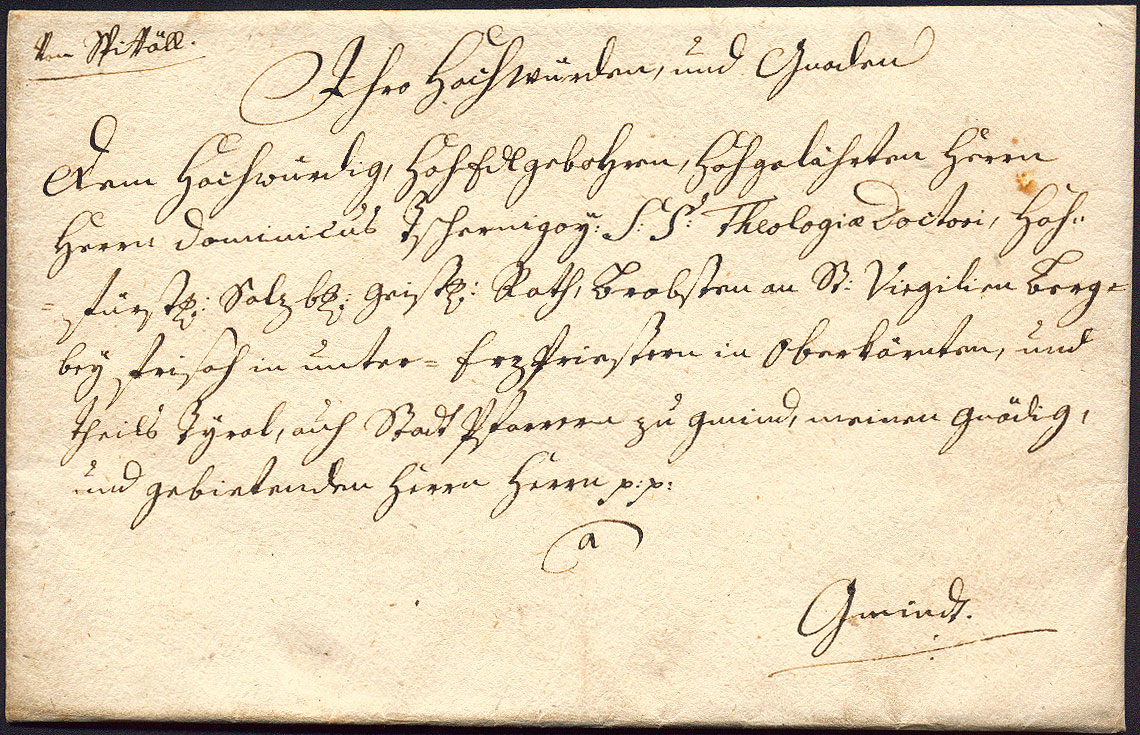 Von Spittäll.
Ihro Hochwürden, und Gnaden
Dem Hochwürdig, HochEdlgebohren, Hochgelährten Herrn
Herrn Dominicus Tschernigoy: S: S: Theologiæ Doctori, Hoch=
=fürstl: Salzb: geistl: Rath, Brobsten an St: Virgilien Berg=
bey Frisach in unter= Erzpriestern in Oberkärnten, und
theils Tÿrol, auch Stadt Pfarrern zu Gmünd, meinen gnädig,
und gebietenden Herrn Herrn p: p:
a
Gmündt.